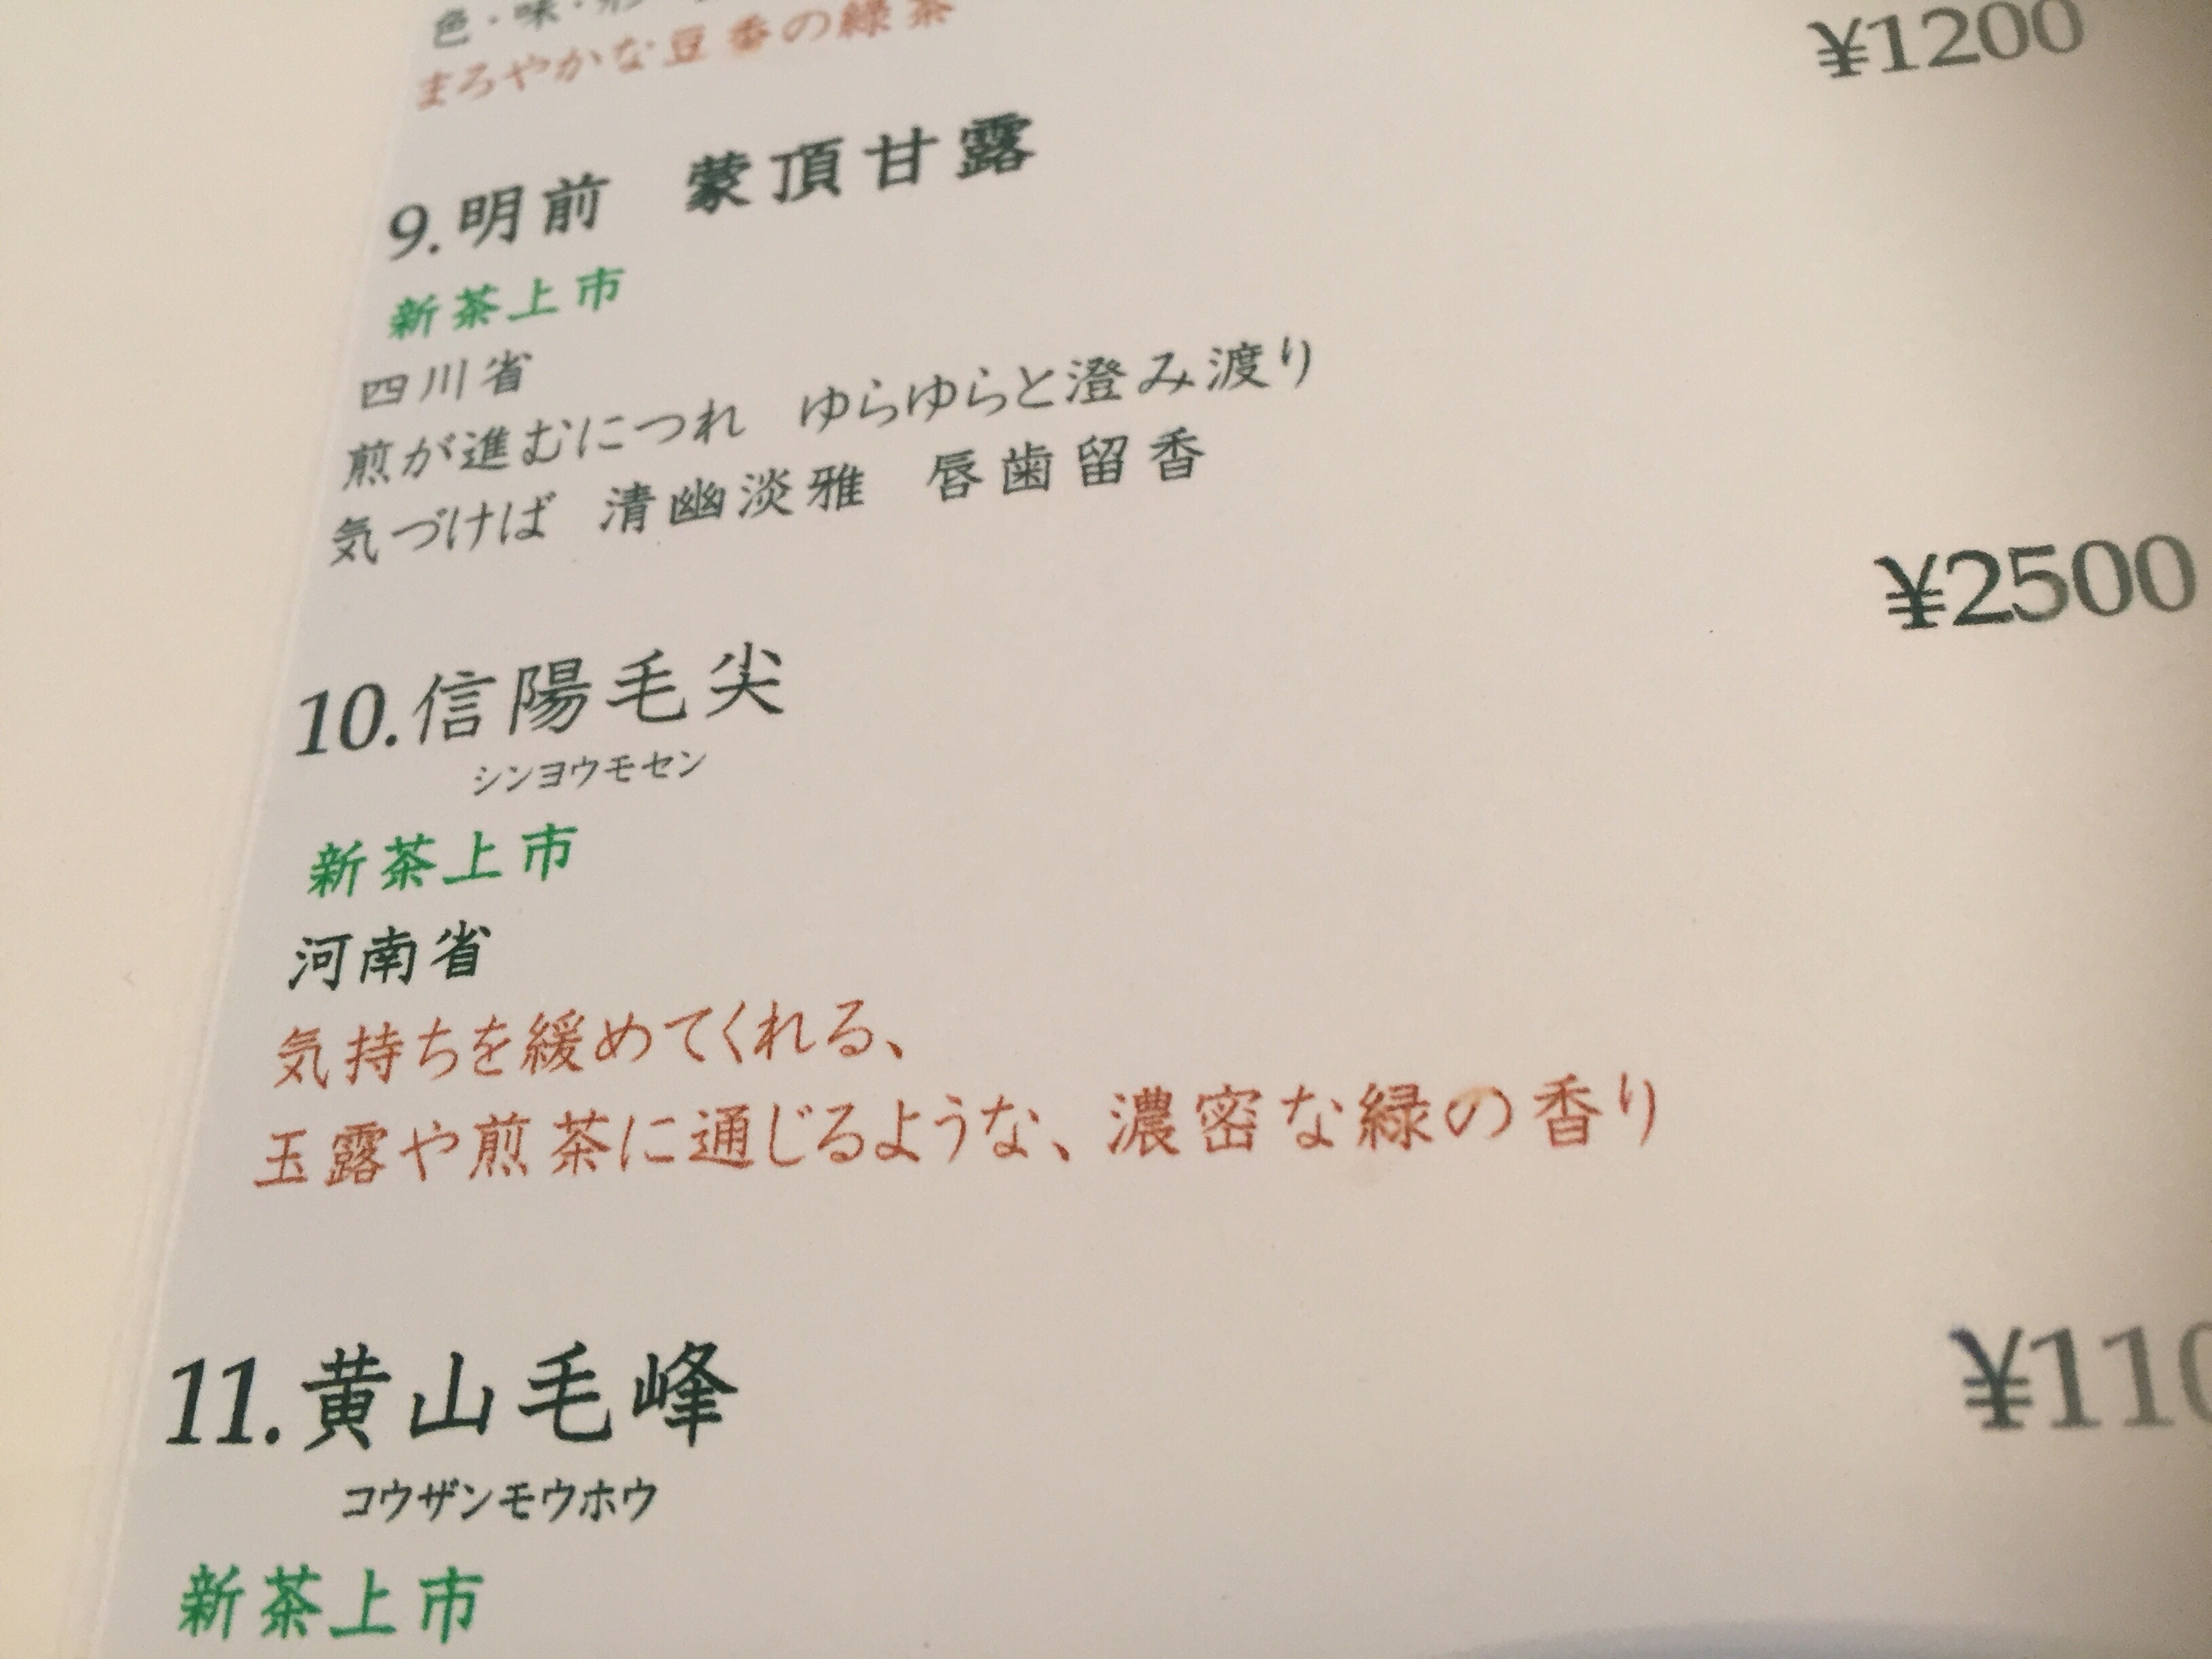 色・味・形
まろやかな豆香の緑茶
¥1200
9.明前 蒙頂甘露
新茶上市
四川省
煎が進むにつれ ゆらゆらと澄み渡り
気づけば 清幽淡雅 唇歯留香
¥2500
10.信陽毛尖
シンヨウモセン
新茶上市
河南省
気持ちを緩めてくれる、
玉露や煎茶に通じるような、濃密な緑の香り
¥110
11.黄山毛峰
コウザンモウホウ
新茶上市